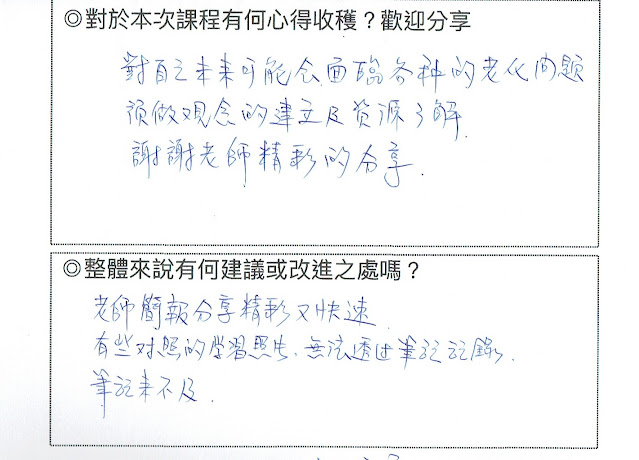 ◎對於本次課程有何心得收穫？歡迎分享
對自己未來可能会面臨各种的老化问題
預做观念的建立及資源了解.
謝謝老師精彩的分享.
◎整體來說有何建議或改進之處嗎？
老師簡報分享精彩又快速
有些对照的学習照片、無法透过筆记记錄.
筆记來不及.